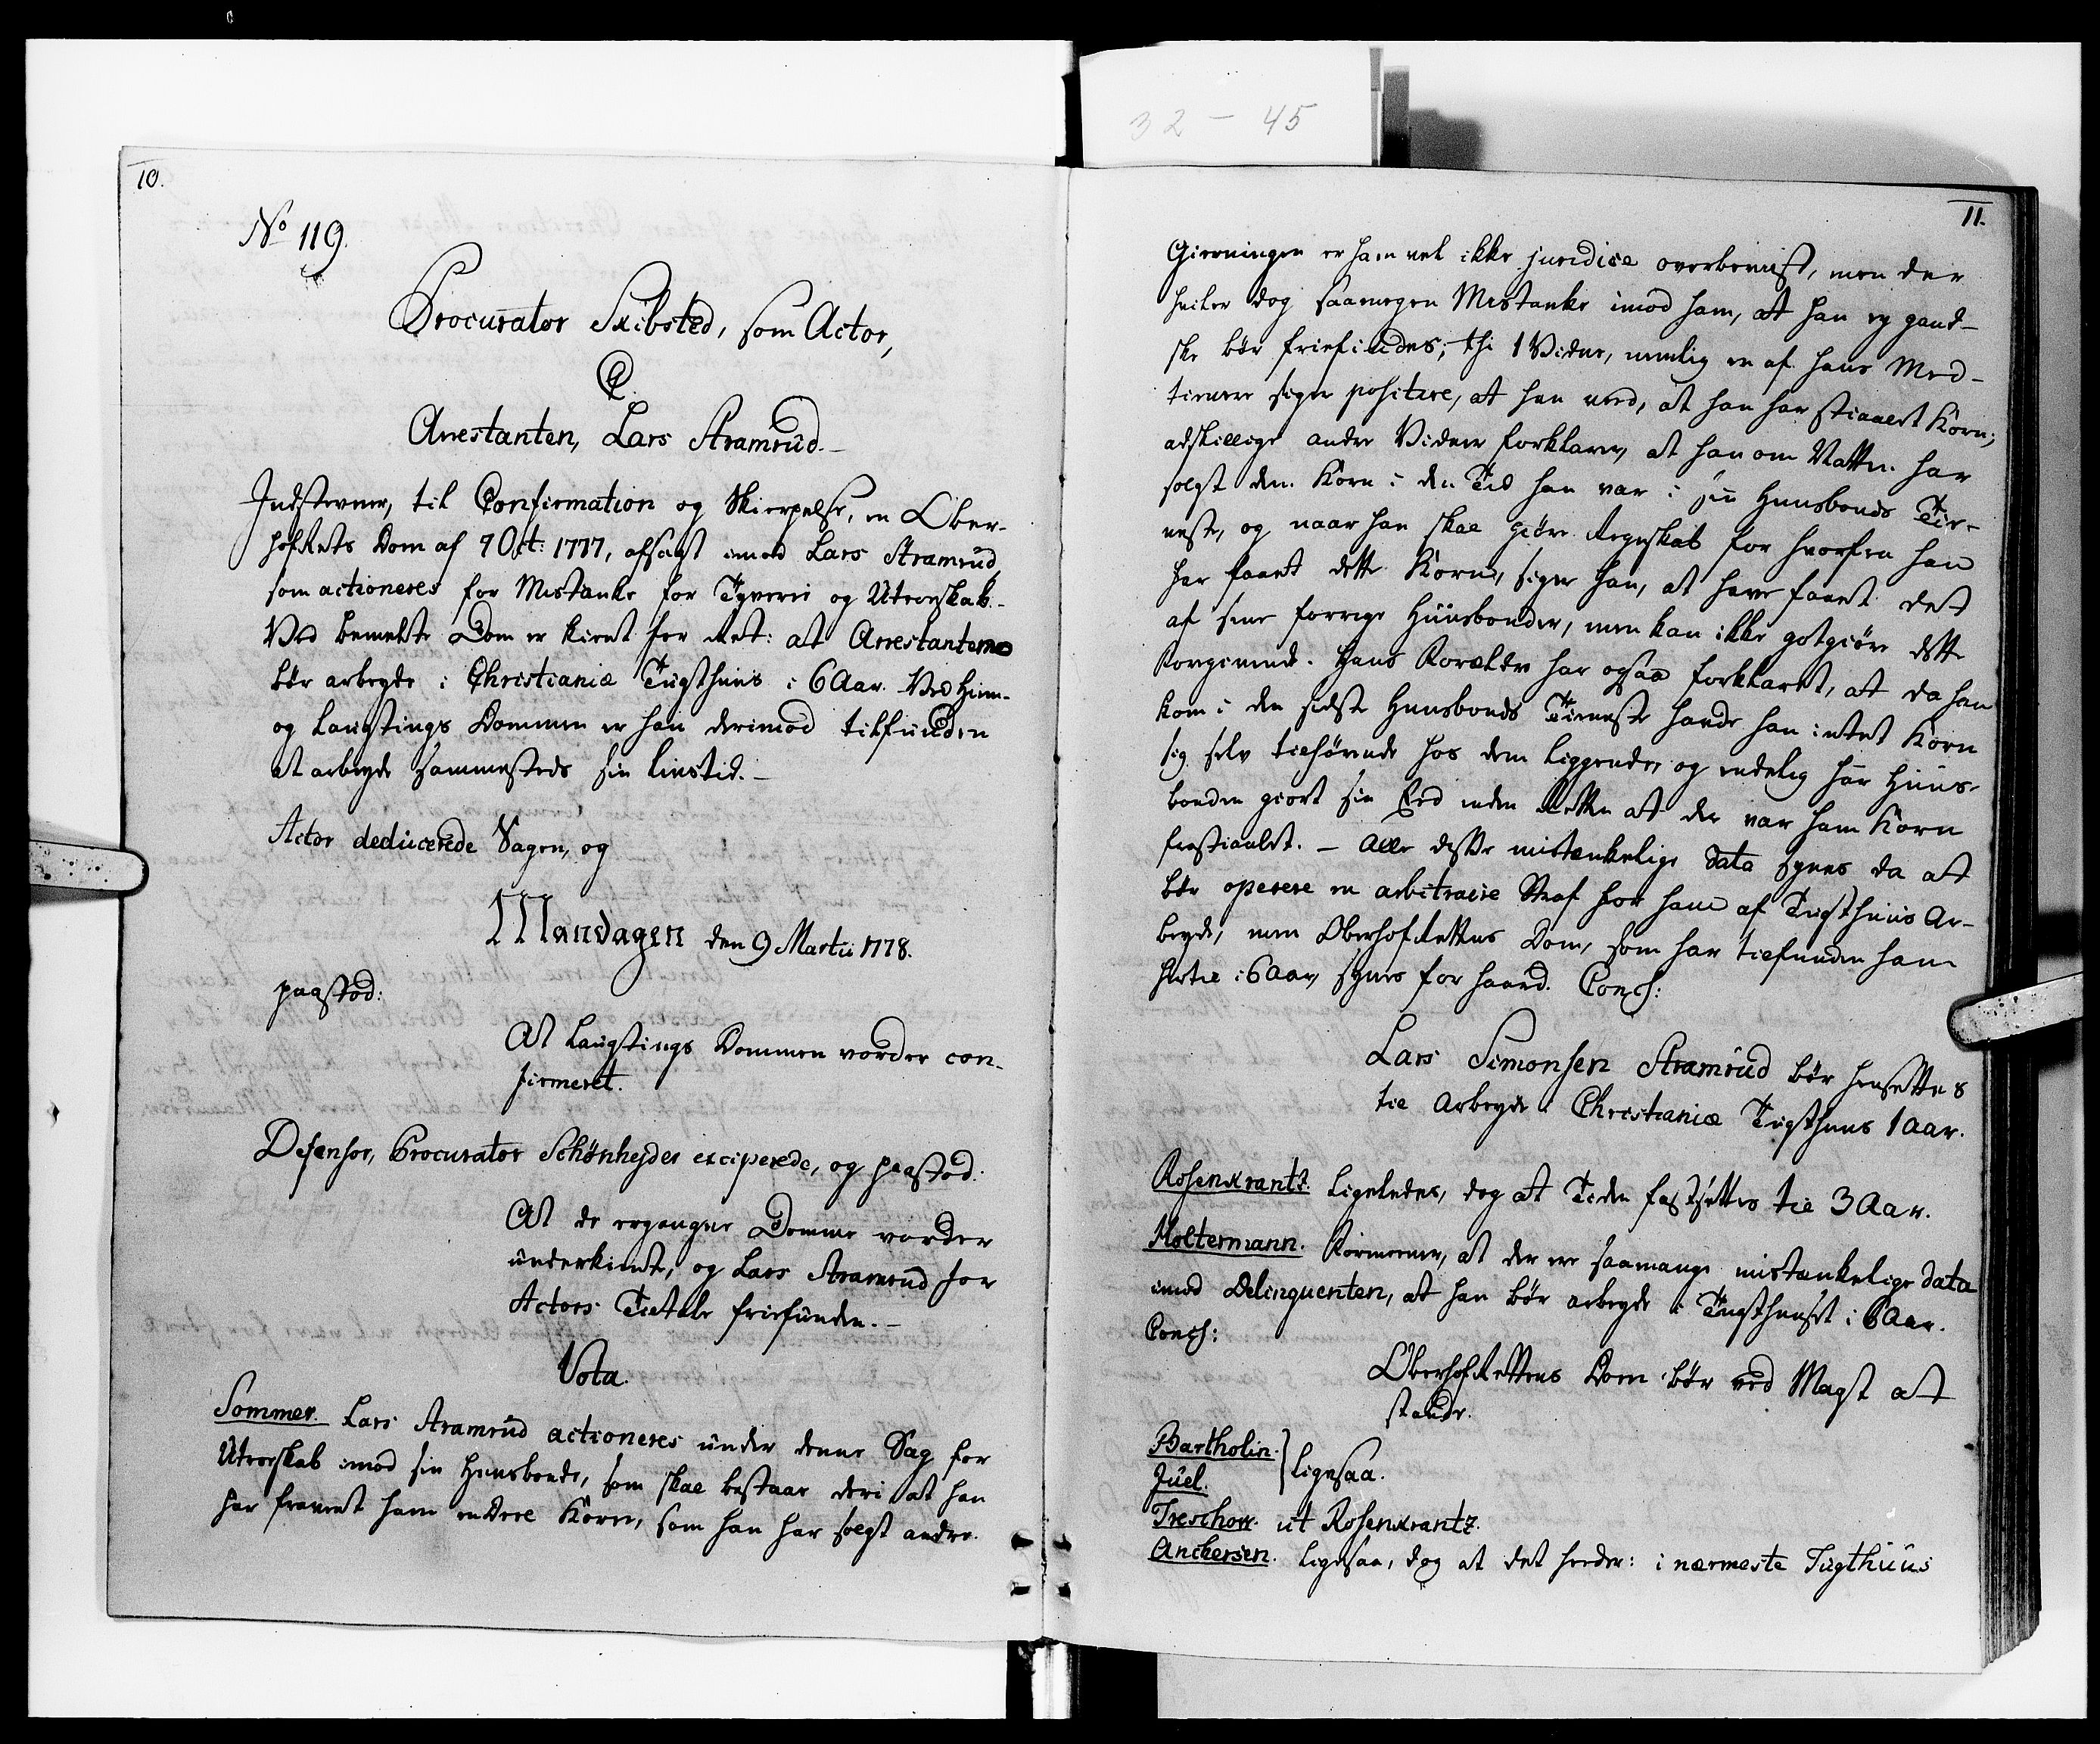 32 - 45
10.
No 119.
Procurator Skibsted, som Actor,
C
Arrestanten, Lars Aramrud.
Indstevner, til Confirmation og Skierpelse, en Ober-
hofRets Dom af 7 Oct: 1777, afsagt imod Lars Aramrud,
som actioneres for Mistanke for Tyverie og Utroeskab.
Ved bemelte Dom er kient for Ret: at Arrestanten
bør arbeyde i Christianiæ Tugthuus i 6 Aar. Ved Hiem-
og Laugtings Dommen er han derimod tilfunden
at arbeyde sammesteds sin Livstid.
Actor deducerede Sagen, og
Mandagen den 9 Martii 1778.
paastod:
At Laugtings Dommen vorder con-
firmeret.
Defensor, Procurator Schønheyder exciperede, og paastod:
At de ergangne Domme vorder
underkiendt, og Lars Aramrud for
Actors Tiltale friefunden.
Vota.
Sommer. Lars Aramrud actioneres under denne Sag for
Utroeskab imod sin Huusbonde, som skal bestaae deri at han
har fravent ham en Deel Korn, som han har solgt andre.
11.
Gierningen er ham vel ikke juridice overbeviist, men der
hviler dog saamegen Mistanke imod ham, at han ey gand-
ske bør friefindes; thi 1 Vidne, nemlig en af hans Med-
tienere siger positive, at han veed, at han har stiaalet Korn;
adskillige andre Vidner forklarer, at han om Natten har
solgt dem Korn i den Tid han var i sin Huusbonds Tie-
neste, og naar han skal giøre Regnskab for hvorfra han
har faaet dette Korn, siger han, at have faaet det
af sine forrige Huusbonder, men kan ikke godtgiøre dette
Foregivende. Hans Forældre har ogsaa forklaret, at da han
kom i den sidste Huusbonds Tieneste havde han intet Korn
sig selv tilhørende hos dem liggende, og endelig har Huus-
bonden giort sin Eed inden Retten at der var ham Korn
frastiaalet. - Alle disse mistænkelige data synes da at
bør operere en arbitraire Straf for ham af Tugthuus Ar-
beyde, men OberhofRettens Dom, som har tilfunden ham
hertil i 6 Aar, synes for haard. Concl:
Lars Simonsen Aramrud bør hensettes
til Arbeyde i Christianiæ Tugthuus 1 Aar.
Rosenkrantz. Ligeledes, dog at Tiden fastsettes til 3 Aar.
Holtermann. Formeener, at der ere saamange mistænkelige data
imod Delinquenten, at han bør arbeyde i Tugthuuset i 6 Aar.
Concl:
OberhofRettens Dom bør ved Magt at
stande.
Bartholin.
Juel.
} Ligesaa.
Treschow. ut Rosenkrantz.
Anchersen. Ligesaa, dog at det heeder: i nærmeste Tugthuus